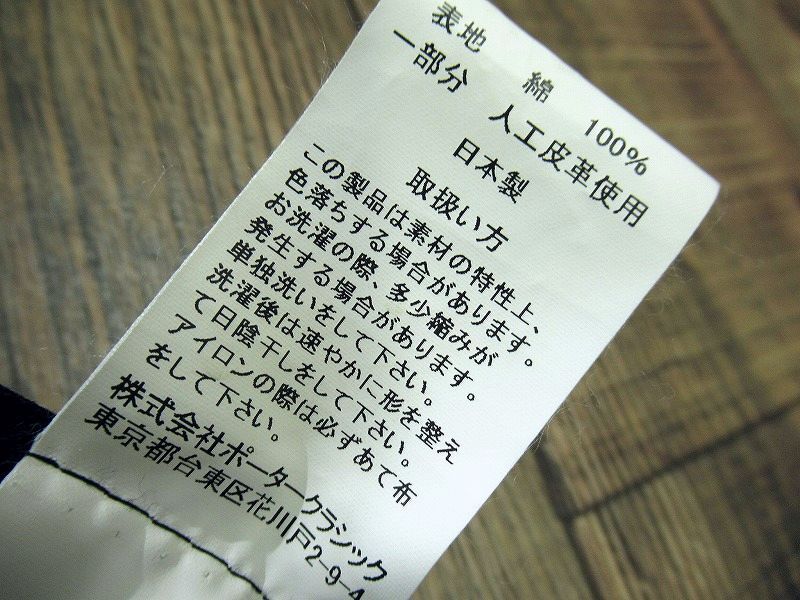 表地 綿 100%
一部分 人工皮革使用
日本製
取扱い方
この製品は素材の特性上、
色落ちする場合があります。
お洗濯の際、多少縮みが
発生する場合があります。
単独洗いをして下さい。
洗濯後は速やかに形を整え
て日陰干しをして下さい。
アイロンの際は必ずあて布
をして下さい。
株式会社ポータークラシック
東京都台東区花川戸2-9-4